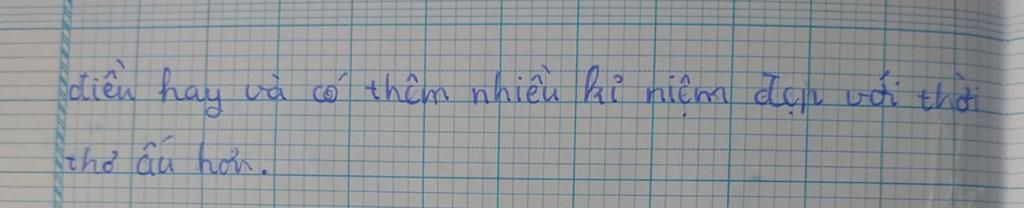 điều hay và có thêm nhiều kỉ niệm đẹp với thời
thơ ấu hơn.